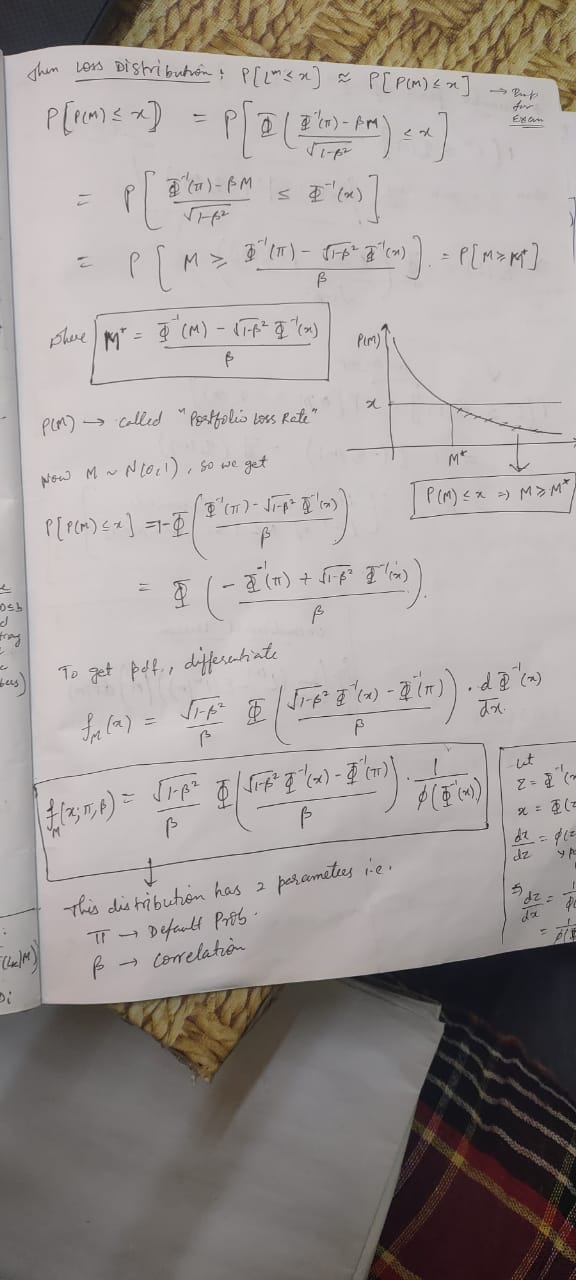 Then Loss Distribution : P[Lᵐ ≤ x] ≈ P[P(M) ≤ x] → Imp for Exam
P[P(M) ≤ x] = P[Φ((Φ⁻¹(π) - βM)/√(1-β²)) ≤ x]
= P[(Φ⁻¹(π) - βM)/√(1-β²) ≤ Φ⁻¹(x)]
= P[M ≥ (Φ⁻¹(π) - √(1-β²) Φ⁻¹(x))/β] = P[M ≥ M*]
where M* = (Φ⁻¹(M) - √(1-β²) Φ⁻¹(x))/β
P(M)
x
M*
P(M) ≤ x ⇒ M ≥ M*
P(M) → called "Portfolio Loss Rate"
Now M ~ N(0,1), so we get
P[P(M) ≤ x] = 1-Φ((Φ⁻¹(π) - √(1-β²) Φ⁻¹(x))/β)
= Φ((-Φ⁻¹(π) + √(1-β²) Φ⁻¹(x))/β).
To get pdf., differentiate
f_M(x) = √(1-β²)/β Φ((√(1-β²) Φ⁻¹(x) - Φ⁻¹(π))/β) · d/dx Φ⁻¹(x)
f_M(x; π, β) = √(1-β²)/β Φ((√(1-β²) Φ⁻¹(x) - Φ⁻¹(π))/β) · 1/φ(Φ⁻¹(x))
This distribution has 2 parameters i.e.
π → Default Prob.
β → correlation
Let
z = Φ⁻¹(
x = Φ(z
dx/dz = φ(z
dz/dx = 1/φ(
= 1/φ(Φ